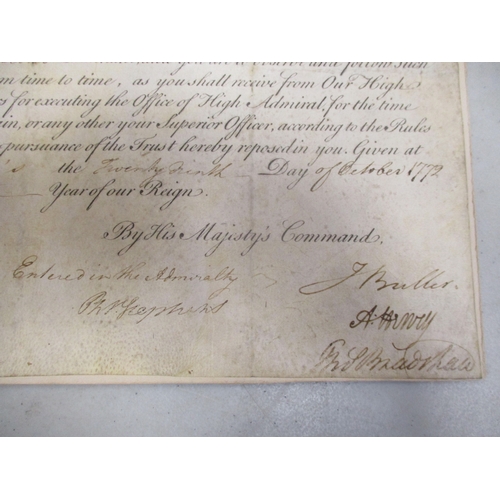 and follow such
m time to time, as you shall receive from Our High
s for executing the Office of High Admiral, for the time
in, or any other your Superior Officer, according to the Rules
pursuance of the Trust hereby reposed in you. Given at
's the Twenty Ninth Day of October 1772
Year of our Reign.
By His Majesty's Command,
Entered in the Admiralty
Ph Stephens
J Buller.
A. Hervey
Th S Bradshaw